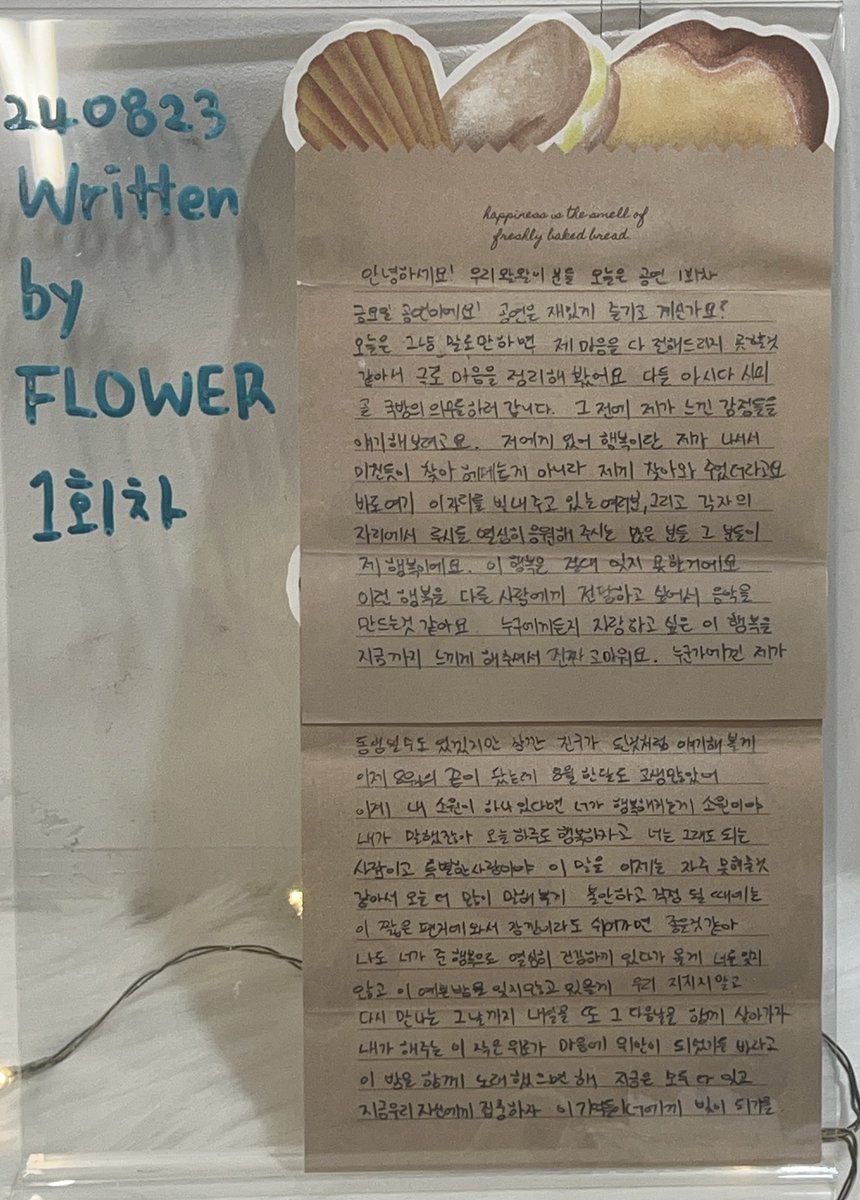 240823
Written
by
FLOWER
1회차
happiness is the smell of
freshly baked bread.
안녕하세요! 우리 왈왈이 분들 오늘은 공연 1회차
금요일 공연이에요! 공연은 재밌게 즐기고 계신가요?
오늘은 그냥 말로만하면 제 마음을 다 전해드리지 못할것
같아서 글로 마음을 정리해 봤어요 다들 아시다 시피
곧 국방의 의무를하러 갑니다. 그 전에 제가 느낀 감정들을
얘기해보려고요. 저에게 있어 행복이란 제가 나서서
미친듯이 찾아 헤메는게 아니라 제게 찾아와 주었더라고요
바로여기 이 자리를 빛내주고 있는 여러분, 그리고 각자의
자리에서 루시를 열심히 응원해 주시는 많은 분들 그 분들이
제 행복이에요. 이 행복은 절대 잊지 못할거에요
이런 행복을 다른 사람에게 전달하고 싶어서 음악을
만드는것 같아요 누구에게든지 자랑하고 싶은 이 행복을
지금까지 느끼게 해주셔서 진짜 고마워요. 누군가에겐 제가
동생일수도 있겠지만 잠깐 친구가 된것처럼 얘기해 볼게
이제 8월의 끝이 왔는데 8월 한달도 고생많았어
이제 내 소원이 하나 있다면 너가 행복해지는게 소원이야
내가 말했잖아 오늘 하루도 행복하라고 너는 그래도 되는
사람이고 특별한사람이야 이 말을 이제는 자주 못해줄것
같아서 오늘 더 많이 말해볼게 불안하고 걱정 될 때에는
이 짧은 편지에 와서 잠깐이라도 쉬어가면 좋을것같아
나도 너가 준 행복으로 열심히 건강하게 있다가 올게 너를 잊지
않고 이 예쁜밤을 잊지않고 있을게 우리 지치지말고
다시 만나는 그날까지 내일을 또 그 다음날을 함께 살아가자
내가 해주는 이 작은 위로가 마음에 위안이 되었기를 바라고
이 밤을 함께 노래했으면 해 지금은 모두 다 잊고
지금우리 자신에게 집중하자 이 기억들이 너에게 빛이 되기를